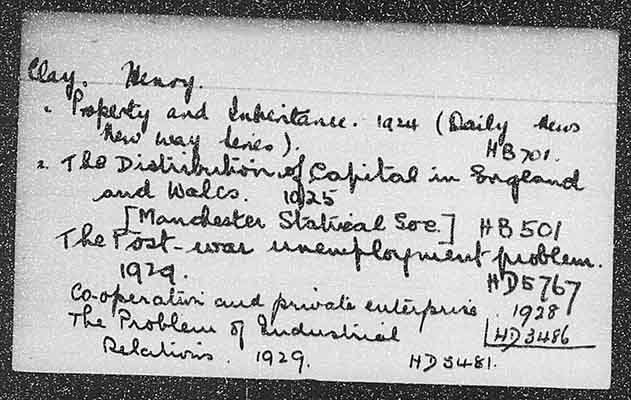 Clay. Henry.
1. Property and Inheritance. 1924 (Daily News
New way series).
HB701.
2. The Distribution of Capital in England
and Wales. 1925
[Manchester Statical Soc.] HB501
The Post-war unemployment problem.
1929. HD5767
Co-operation and private enterprise. 1928
HD3486
The Problem of Industrial
Relations. 1929. HD5481.